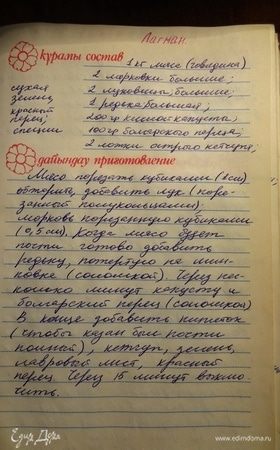 Лагман.
құрамы состав
1 кг мяса (говядина)
2 морковки большие;
сухая 2 луковицы большие;
зелень, 1 редька большая;
красный перец; 200 гр кислой капусты;
специи 100 гр болгарского перца;
2 ложки острого кетчупа;
дайындау приготовление
Мясо порезать кубиками (1см)
обжарить, добавить лук (поре-
занный полукольцами);
морковь порезанную кубиками
(0,5 см). Когда мясо будет
почти готово добавить
редьку, потертую на шин-
ковке (соломкой). Через нес-
колько минут капусту и
болгарский перец (соломкой)
В конце добавить кипяток
(чтобы казан был почти
полный), кетчуп, зелень,
лавровый лист, красный
перец. Через 15 минут выклю-
чить.
Едим Дома
www.edimdoma.ru